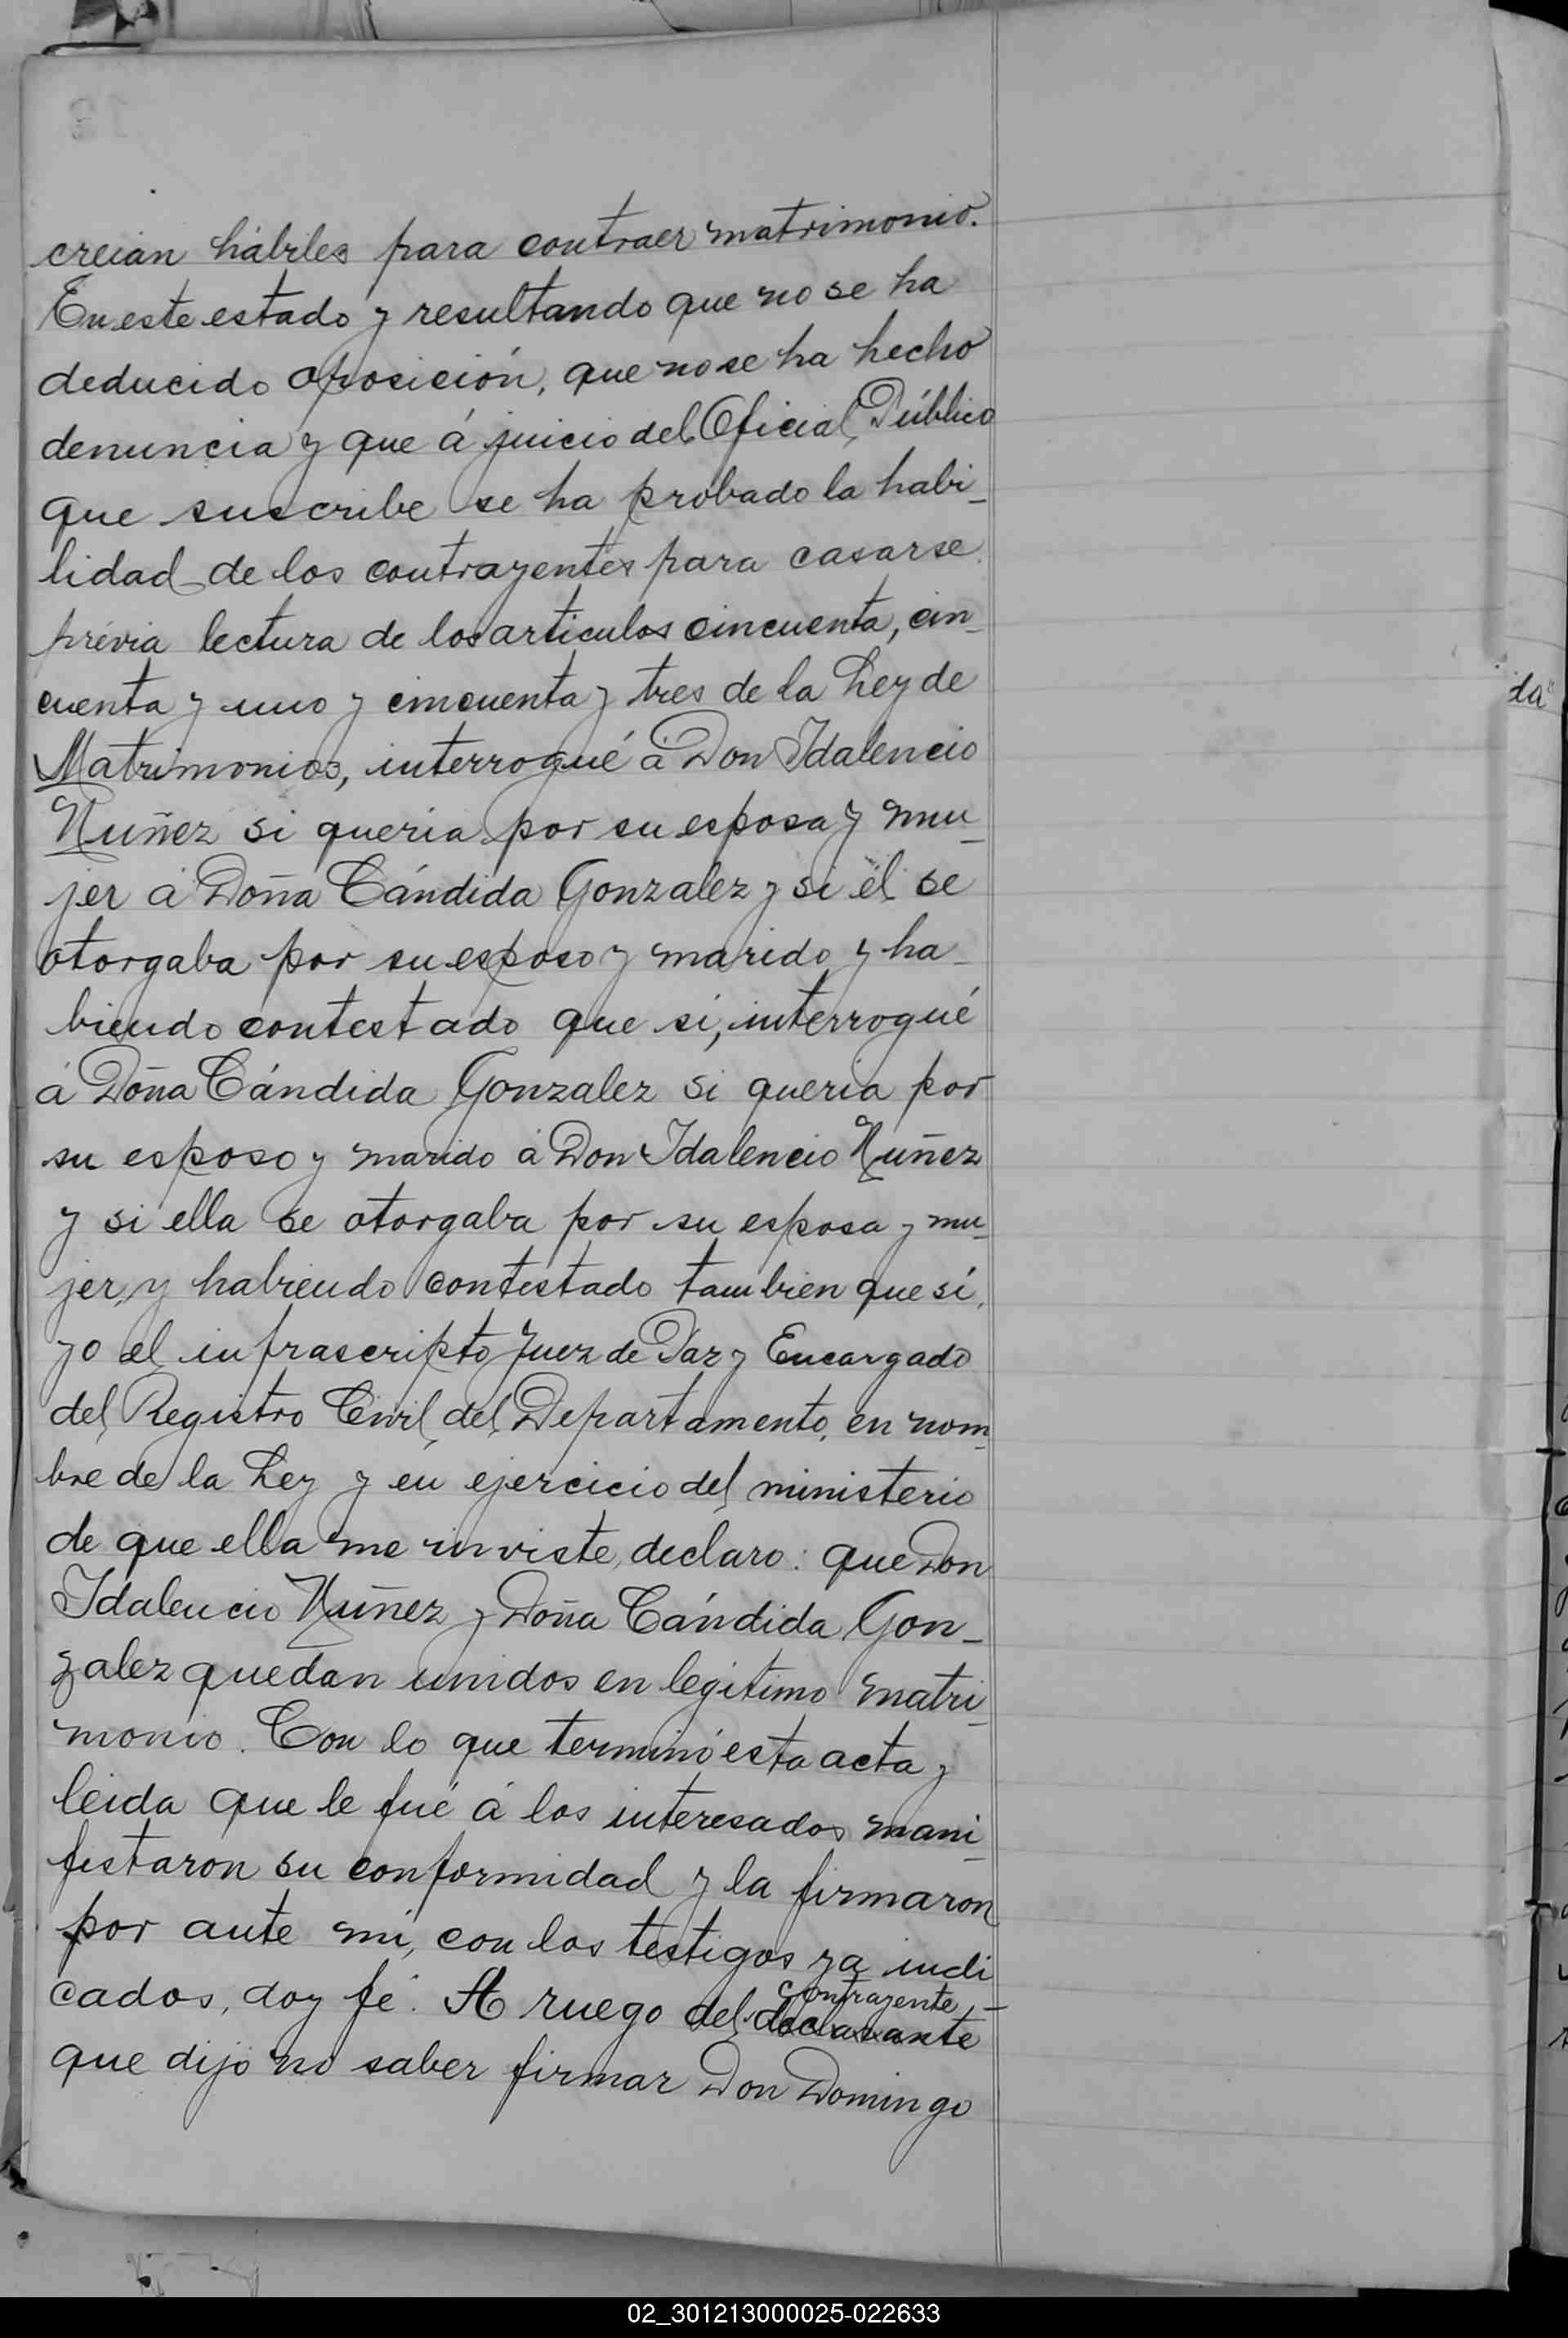 creian hábiles para contraer matrimonio.
En este estado y resultando que no se ha
deducido oposición, que no se ha hecho
denuncia y que á juicio del Oficial Público
que suscribe se ha probado la habi_
lidad de los contrayentes para casarse
prévia lectura de los articulos cincuenta, cin_
cuenta y uno y cincuenta y tres de la Ley de
Matrimonios, interrogué á Don Idalencio
Nuñez si queria por su esposa y mu_
jer á Doña Cándida Gonzalez y si él se
otorgaba por su esposo y marido y ha_
biendo contestado que si, interrogué
á Doña Cándida Gonzalez si queria por
su esposo y marido á Don Idalencio Nuñez
y si ella se otorgaba por su esposa y mu_
jer, y habiendo contestado tambien que sí,
yo el infrascripto Juez de Paz y Encargado
del Registro Civil del Departamento, en nom_
bre de la Ley y en ejercicio del ministerio
de que ella me inviste, declaro: que Don
Idalencio Nuñez y Doña Cándida Gon_
zalez quedan unidos en legitimo matri_
monio. Con lo que terminó esta acta y
leida que le fué á los interesados mani_
festaron su conformidad y la firmaron
por ante mi, con los testigos ya indi_
cados, doy fé. A ruego del declarante contrayente,
que dijo no saber firmar Don Domingo
da"
02_301213000025-022633